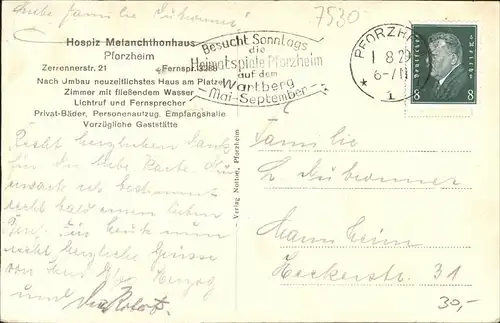 Liebe Familie Dubronner!
7530
Hospiz Melanchthonhaus
Pforzheim
Zerrennerstr. 21 Fernspr.
Nach Umbau neuzeitlichstes Haus am Platze
Zimmer mit fließendem Wasser
Lichtruf und Fernsprecher
Privat-Bäder, Personenaufzug, Empfangshalle
Vorzügliche Gaststätte
Besucht Sonntags
die
Heimatspiele Pforzheim
auf dem
Wartberg
Mai-September
PFORZH
1 8 29
6-7
* 1
Deutsches Reich
8 8
Recht herzlichen Dank
für die liebe Karte.
bestimmt
recht bald einen
Für heute nun
recht herzliche Grüsse
von Herzog
und
Verlag Nothne, Pforzheim
Familie
Dubronner
Mannheim
Heckerstr. 31
30,-